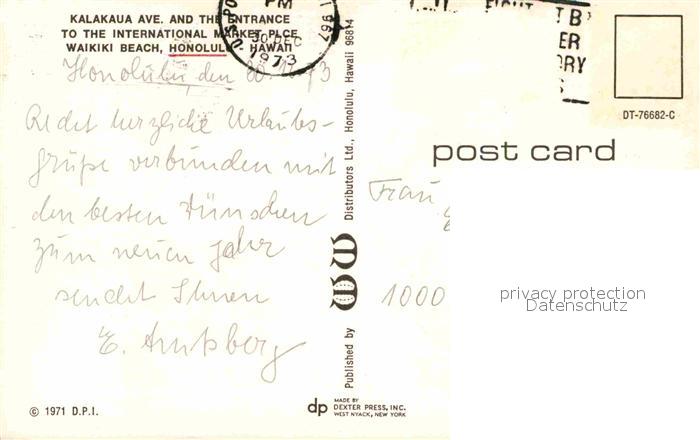 KALAKAUA AVE. AND THE ENTRANCE
TO THE INTERNATIONAL MARKET PLCE,
WAIKIKI BEACH, HONOLULU, HAWAII
U.S. PO
PM
30 DEC
1973
Honolulu, den 30.12.73
Recht herzliche Urlaubs-
grüße verbunden mit
den besten Wünschen
zum neuen Jahr
sendet Ihnen
© 1971 D.P.I.
Published by
Distributors Ltd., Honolulu, Hawaii 96814
dp MADE BY
DEXTER PRESS, INC.
WEST NYACK, NEW YORK
DT-76682-C
post card
Frau
1000
privacy protection
Datenschutz